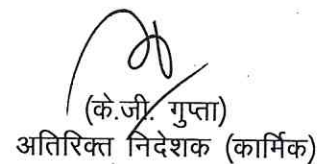 (के.जी. गुप्ता)
अतिरिक्त निदेशक (कार्मिक)